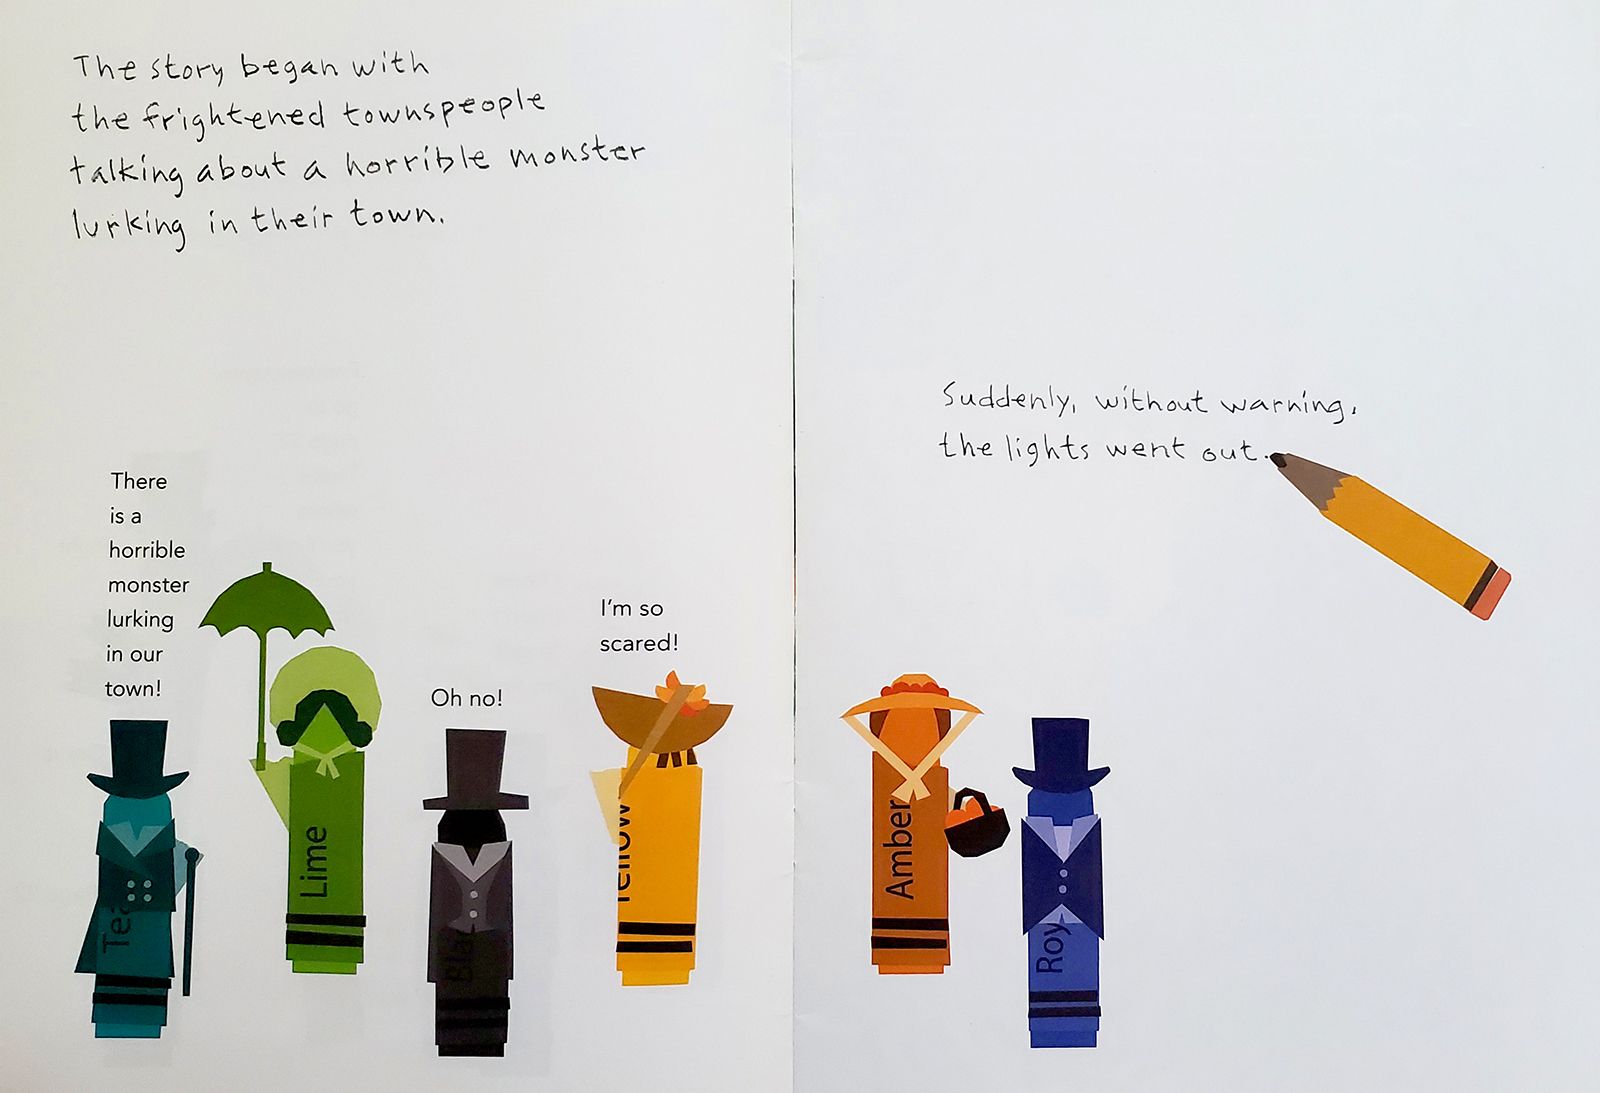 The story began with
the frightened townspeople
talking about a horrible monster
lurking in their town.
There
is a
horrible
monster
lurking
in our
town!
Oh no!
I'm so
scared!
Suddenly, without warning,
the lights went out.
Tea
Lime
Bla
Yellow
Amber
Roy